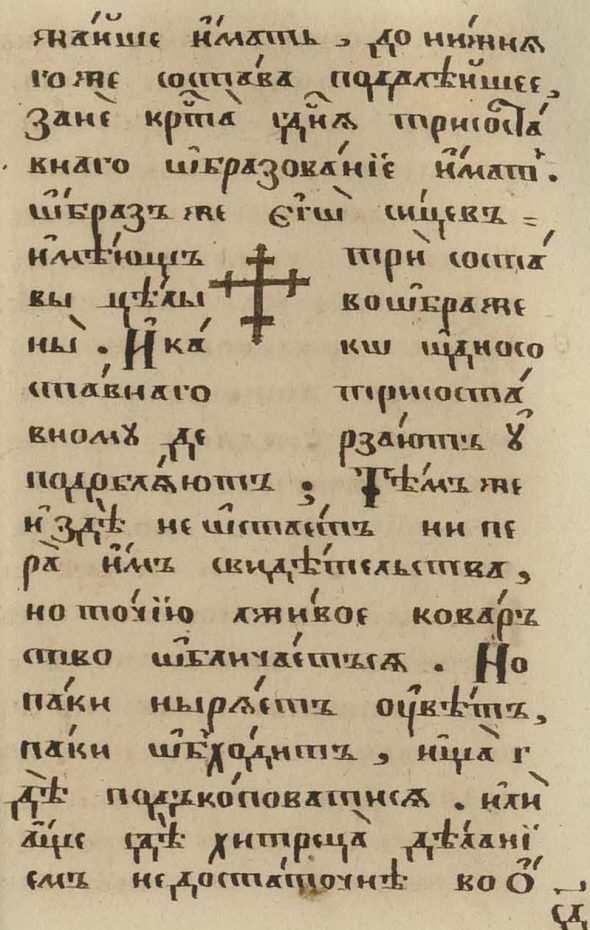 жа́йше и҆́мать , до ни́жнѧ
гоже соста́ва подалѣ́йшее,
Занѐ крⷭ҇та̀ гдⷭ҇нѧ трисоста́
внаго ѡ҆бразова́нїе и҆́мат̾.
ѡ҆́бразъ же є҆гѡ̀ сицевъ =
и҆мѣ́ющъ трѝ соста́
вы цѣ́лы воѡ҆браже
ны̀ . И҆ ка́ кѡ є҆дносо
ста́внаго трисоста́
вному де рза́ютъ ᲂу҆
подоблѧ́ютъ ; Тѣ́мъ же
и҆ здѣ̀ не ѡ҆стае́тъ ни пе
ра̀ и҆́мъ свидѣ́тельства,
но то́чїю лжи́вое ковар̾
ство ѡ҆блича́етъсѧ . Но
па́ки ныря́етъ ѿвѣ́тъ,
па́ки ѡ҆бхо́дитъ , ища̀ г
дѣ̀ подъко́поватисѧ . и҆лѝ
а҆́ще гдѣ̀ хитреца̀ дѣ́ланї
емъ недоста́точнѣ во ѻ҆́